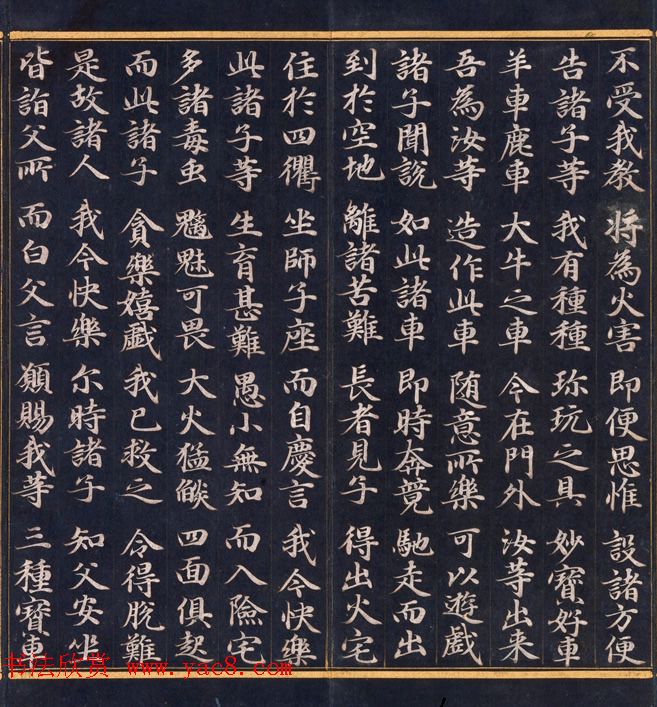 不受我教 將為火害 即便思惟 設諸方便
告諸子等 我有種種 珎玩之具 妙寶好車
羊車鹿車 大牛之車 今在門外 汝等出来
吾為汝等 造作此車 随意所樂 可以遊戲
諸子聞說 如此諸車 即時奔競 馳走而出
到於空地 離諸苦難 長者見子 得出火宅
住於四衢 坐師子座 而自慶言 我今快樂
此諸子等 生育甚難 愚小無知 而入險宅
多諸毒虫 魑魅可畏 大火猛燄 四面俱起
而此諸子 貪樂嬉戲 我已救之 令得脫難
是故諸人 我今快樂 尒時諸子 知父安坐
皆詣父所 而白父言 願賜我等 三種寶車
书法欣赏 www.yac8.com